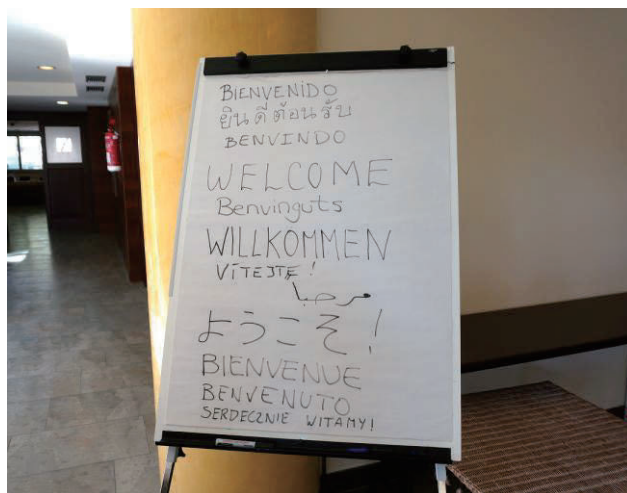 BIENVENIDO
ยินดีต้อนรับ
BENVINDO
WELCOME
Benvinguts
WILLKOMMEN
VÍTEJTE!
مرحبا
ようこそ!
BIENVENUE
BENVENUTO
SERDECZNIE WITAMY!